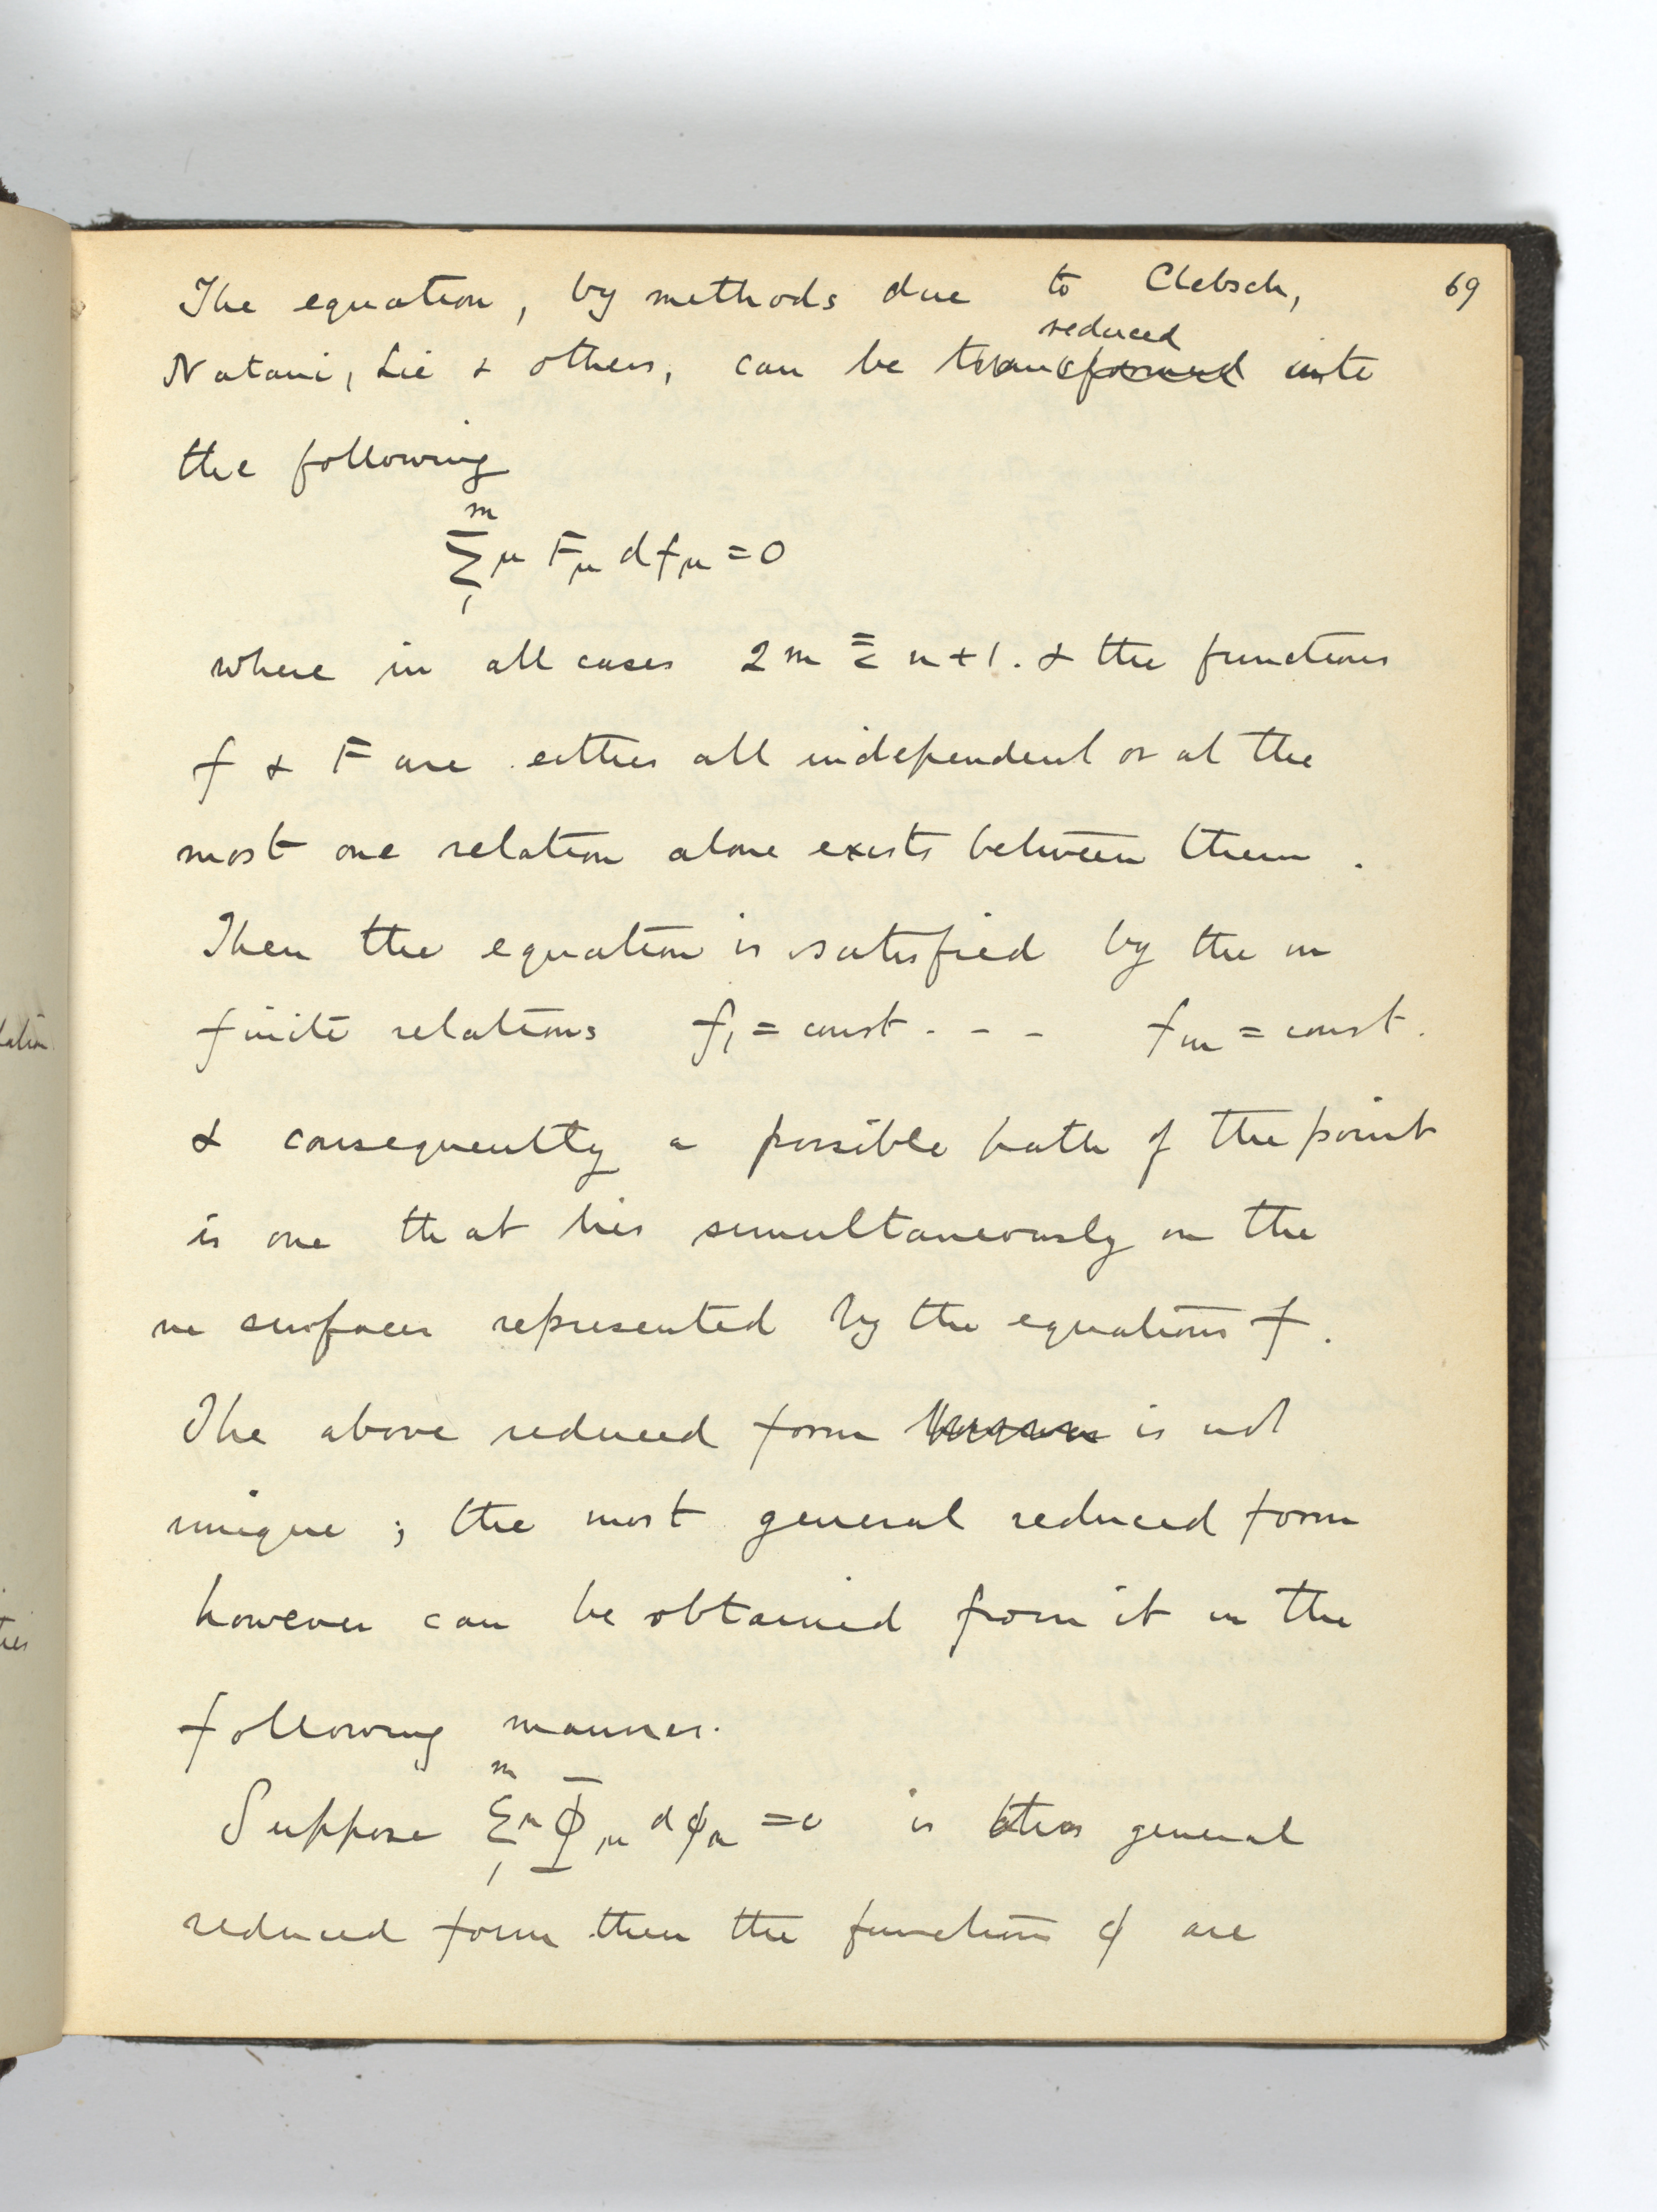 69
The equation, by methods due to Clebsch,
reduced
Natani, Lie & others, can be transformed into
the following
m
Σ μ Fμ dfμ = 0
1
where in all cases 2m ≦ n+1. & the functions
f & F are either all independent or at the
most one relation alone exists between them.
Then the equation is satisfied by the m
finite relations f₁ = const. - - fm = const.
& consequently a possible path of the point
is one that lies simultaneously on the
m surfaces represented by the equations f.
The above reduced form is not
unique; the most general reduced form
however can be obtained from it in the
following manner.
m
Suppose Σ μ Φμ dφμ = 0 is general
1
reduced form then the functions φ are